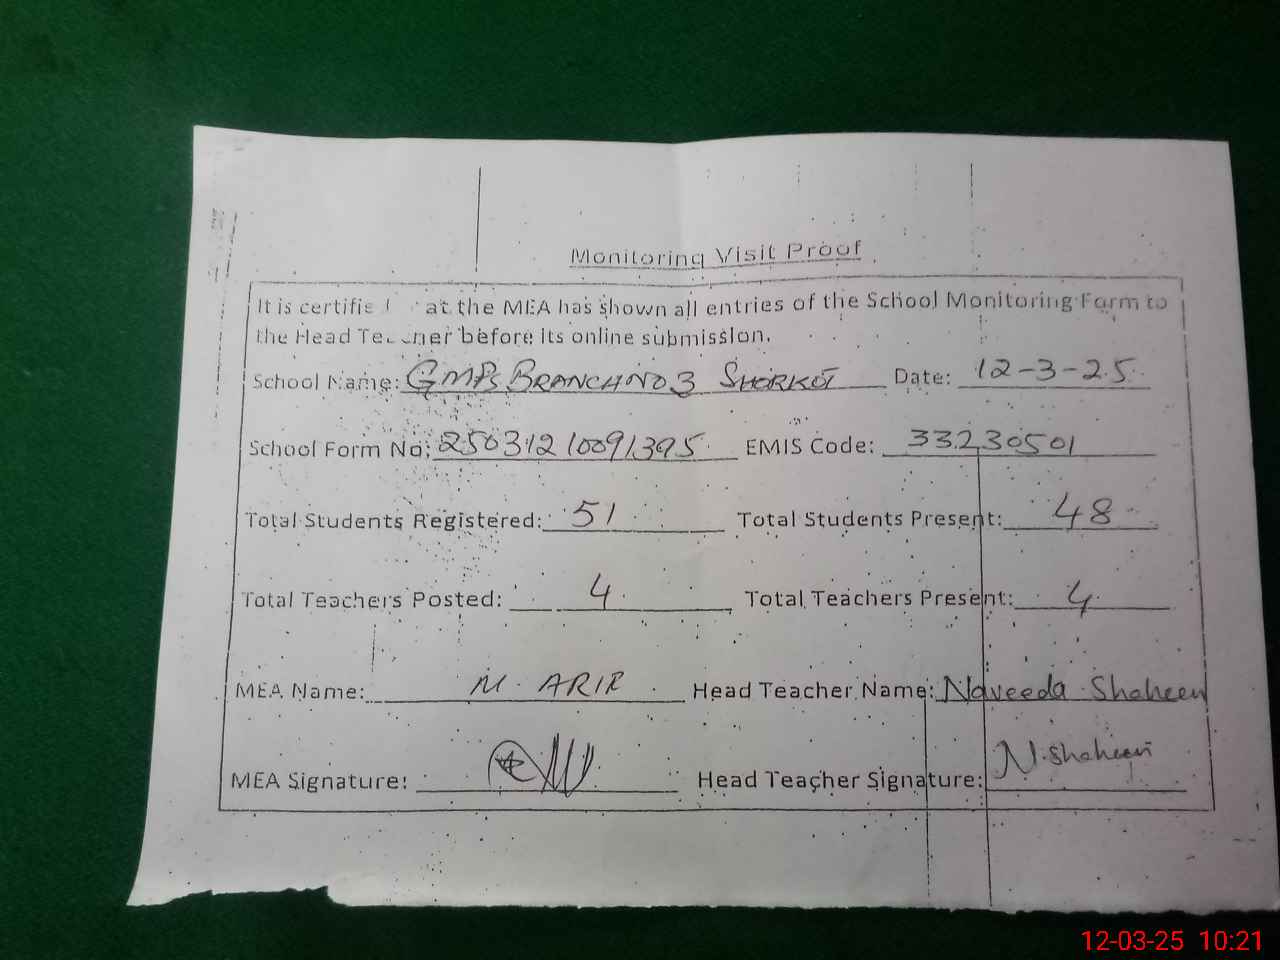 Monitoring Visit Proof
It is certifie at the MEA has shown all entries of the School Monitoring Form to
the Head Teacher before its online submission.
School Name: GMPS BRANCH NO 3 SHORKOT Date: 12-3-25
School Form No: 25031210091395 EMIS Code: 33230501
Total Students Registered: 51 Total Students Present: 48
Total Teachers Posted: 4 Total Teachers Present: 4
MEA Name: M. ARIF Head Teacher Name: Naveeda Shaheen
MEA Signature: Head Teacher Signature: N. Shaheen
12-03-25 10:21